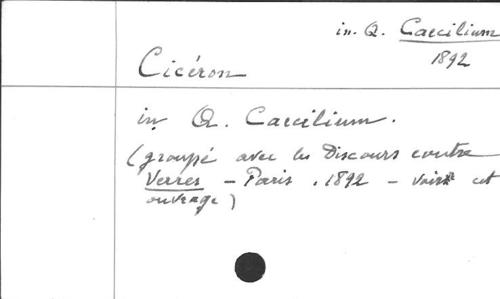 in. Q. Caecilium
1892
Cicéron
in Q. Caecilium.
(groupé avec les Discours contre
Verres – Paris. 1892 – voir cet
ouvrage)